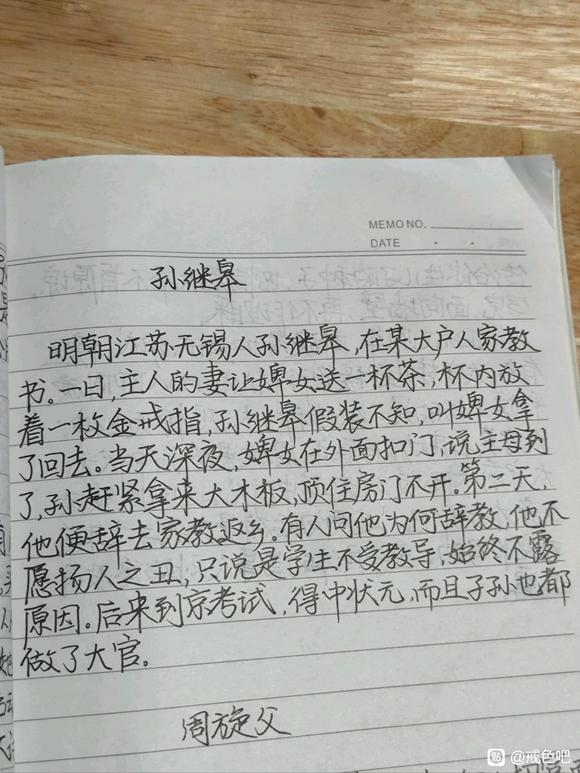 MEMO NO.
DATE
孙继皋
明朝江苏无锡人孙继皋,在某大户人家教
书。一日,主人的妻让婢女送一杯茶,杯内放
着一枚金戒指,孙继皋假装不知,叫婢女拿
了回去。当天深夜,婢女在外面扣门,说主母到
了,孙赶紧拿来大木板,顶住房门不开。第二天,
他便辞去家教返乡。有人问他为何辞教,他不
愿扬人之丑,只说是学生不受教导,始终不露
原因。后来到京考试,得中状元,而且子孙也都
做了大官。
周旋父
@戒色吧